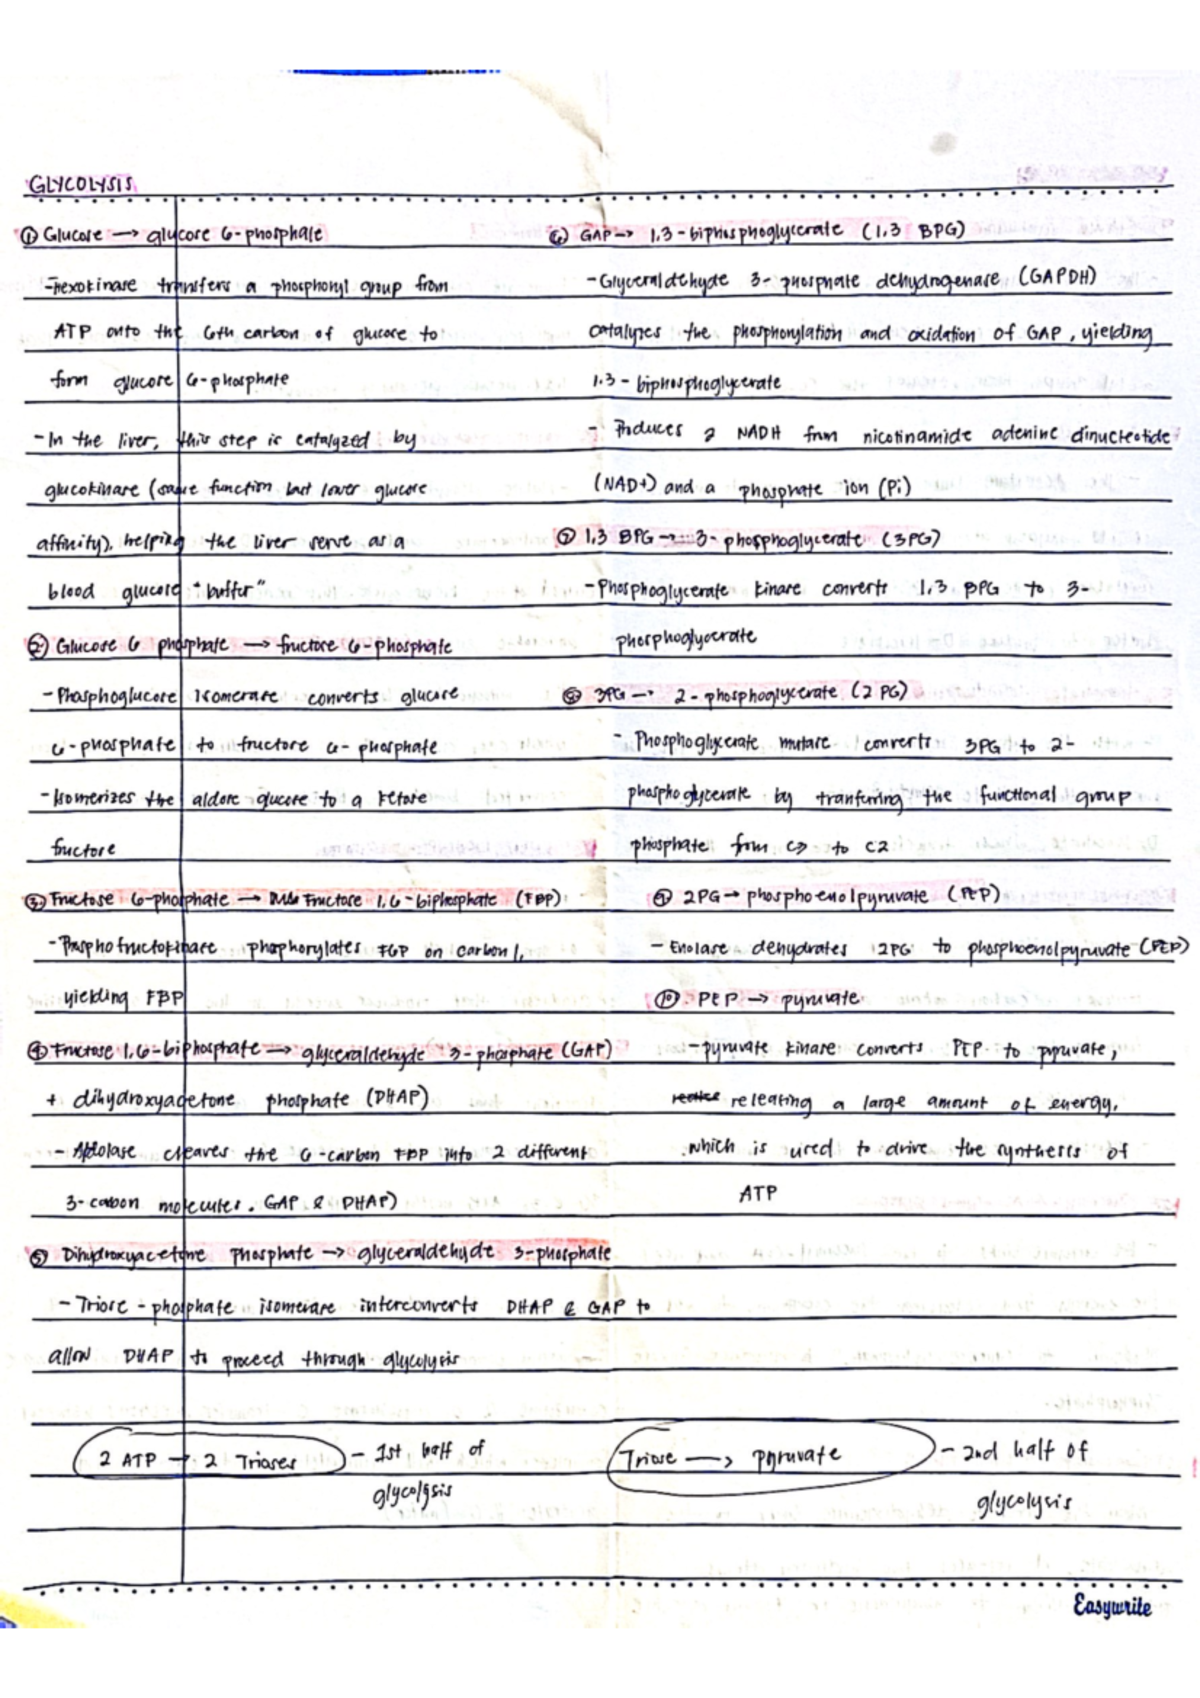 GLYCOLYSIS
① Glucose → glucose 6-phosphate
- Hexokinase transfers a phosphoryl group from
ATP onto the 6th carbon of glucose to
form glucose 6-phosphate
- In the liver, this step is catalyzed by
glucokinase (same function but lower glucose
affinity), helping the liver serve as a
blood glucose "buffer"
② Glucose 6 phosphate → fructose 6-phosphate
- Phosphoglucose Isomerase converts glucose
6-phosphate to fructose 6-phosphate
- Isomerizes the aldose glucose to a ketose
fructose
③ Fructose 6-phosphate → Fructose 1,6-biphosphate (FBP)
- Phosphofructokinase phosphorylates F6P on carbon 1,
yielding FBP
④ Fructose 1,6-biphosphate → glyceraldehyde 3-phosphate (GAP)
+ dihydroxyacetone phosphate (DHAP)
- Aldolase cleaves the 6-carbon FBP into 2 different
3-carbon molecules. GAP & DHAP)
⑤ Dihydroxyacetone phosphate → glyceraldehyde 3-phosphate
- Triose-phosphate isomerase interconverts DHAP & GAP to
allow DHAP to proceed through glycolysis
2 ATP → 2 Trioses - 1st half of
glycolysis
⑥ GAP → 1,3-biphosphoglycerate (1,3 BPG)
- Glyceraldehyde 3-phosphate dehydrogenase (GAPDH)
catalyzes the phosphorylation and oxidation of GAP, yielding
1,3-biphosphoglycerate
- Produces 2 NADH from nicotinamide adenine dinucleotide
(NAD+) and a phosphate ion (Pi)
⑦ 1,3 BPG → 3-phosphoglycerate (3PG)
- Phosphoglycerate kinase converts 1,3 BPG to 3-
phosphoglycerate
⑧ 3PG → 2-phosphoglycerate (2 PG)
- Phosphoglycerate mutase converts 3PG to 2-
phosphoglycerate by tranferring the functional group
phosphate from C3 to C2
⑨ 2PG → phosphoenolpyruvate (PEP)
- Enolase dehydrates 2PG to phosphoenolpyruvate (PEP)
⑩. PEP → pyruvate
- pyruvate kinase converts PEP to pyruvate,
releasing a large amount of energy,
which is used to drive the synthesis of
ATP
Triose → pyruvate - 2nd half of
glycolysis
Easywrite